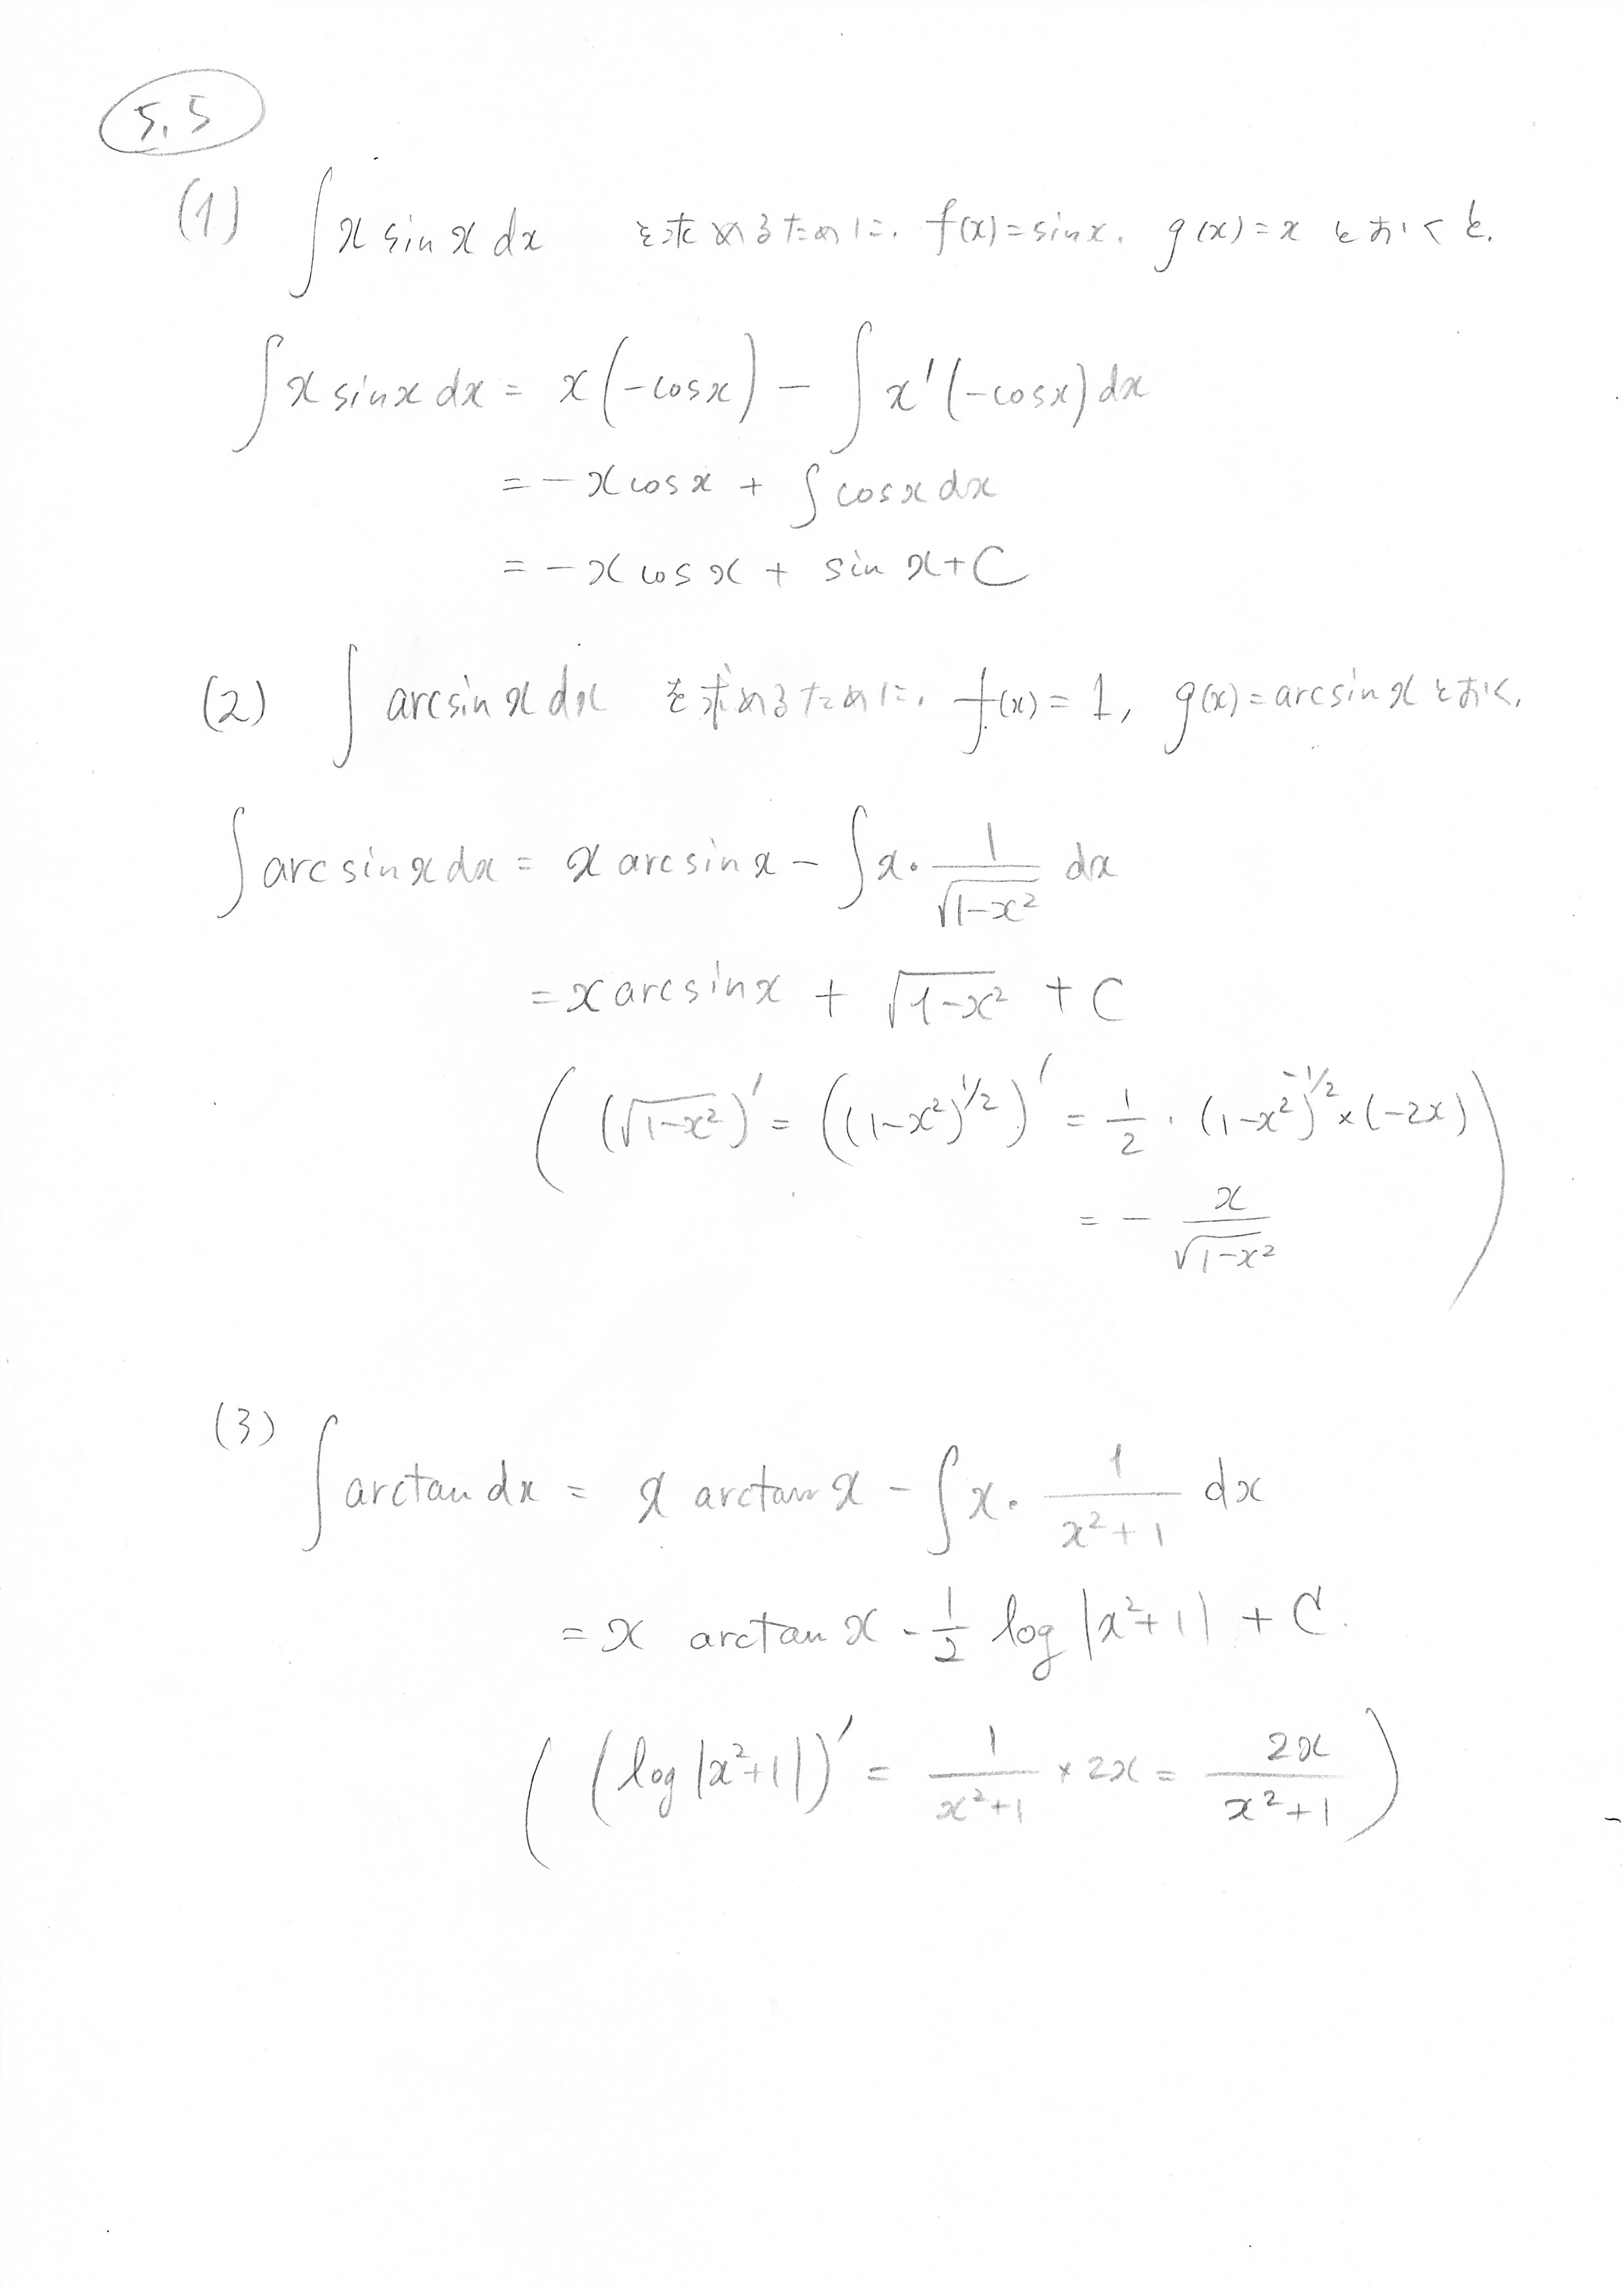 5.5
(1) ∫ x sin x dx を求めるために、f(x)=sin x, g(x)=x とおくと、
∫ x sin x dx = x(-cos x) - ∫ x'(-cos x) dx
= -x cos x + ∫ cos x dx
= -x cos x + sin x + C
(2) ∫ arcsin x dx を求めるために、f(x)=1, g(x)=arcsin x とおく、
∫ arcsin x dx = x arcsin x - ∫ x・1/√(1-x²) dx
= x arcsin x + √(1-x²) + C
( (√(1-x²))' = ((1-x²)^{1/2})' = 1/2・(1-x²)^{-1/2} × (-2x)
= - x/√(1-x²) )
(3) ∫ arctan dx = x arctan x - ∫ x・1/(x²+1) dx
= x arctan x - 1/2 log |x²+1| + C.
( (log |x²+1|)' = 1/(x²+1) × 2x = 2x/(x²+1) )